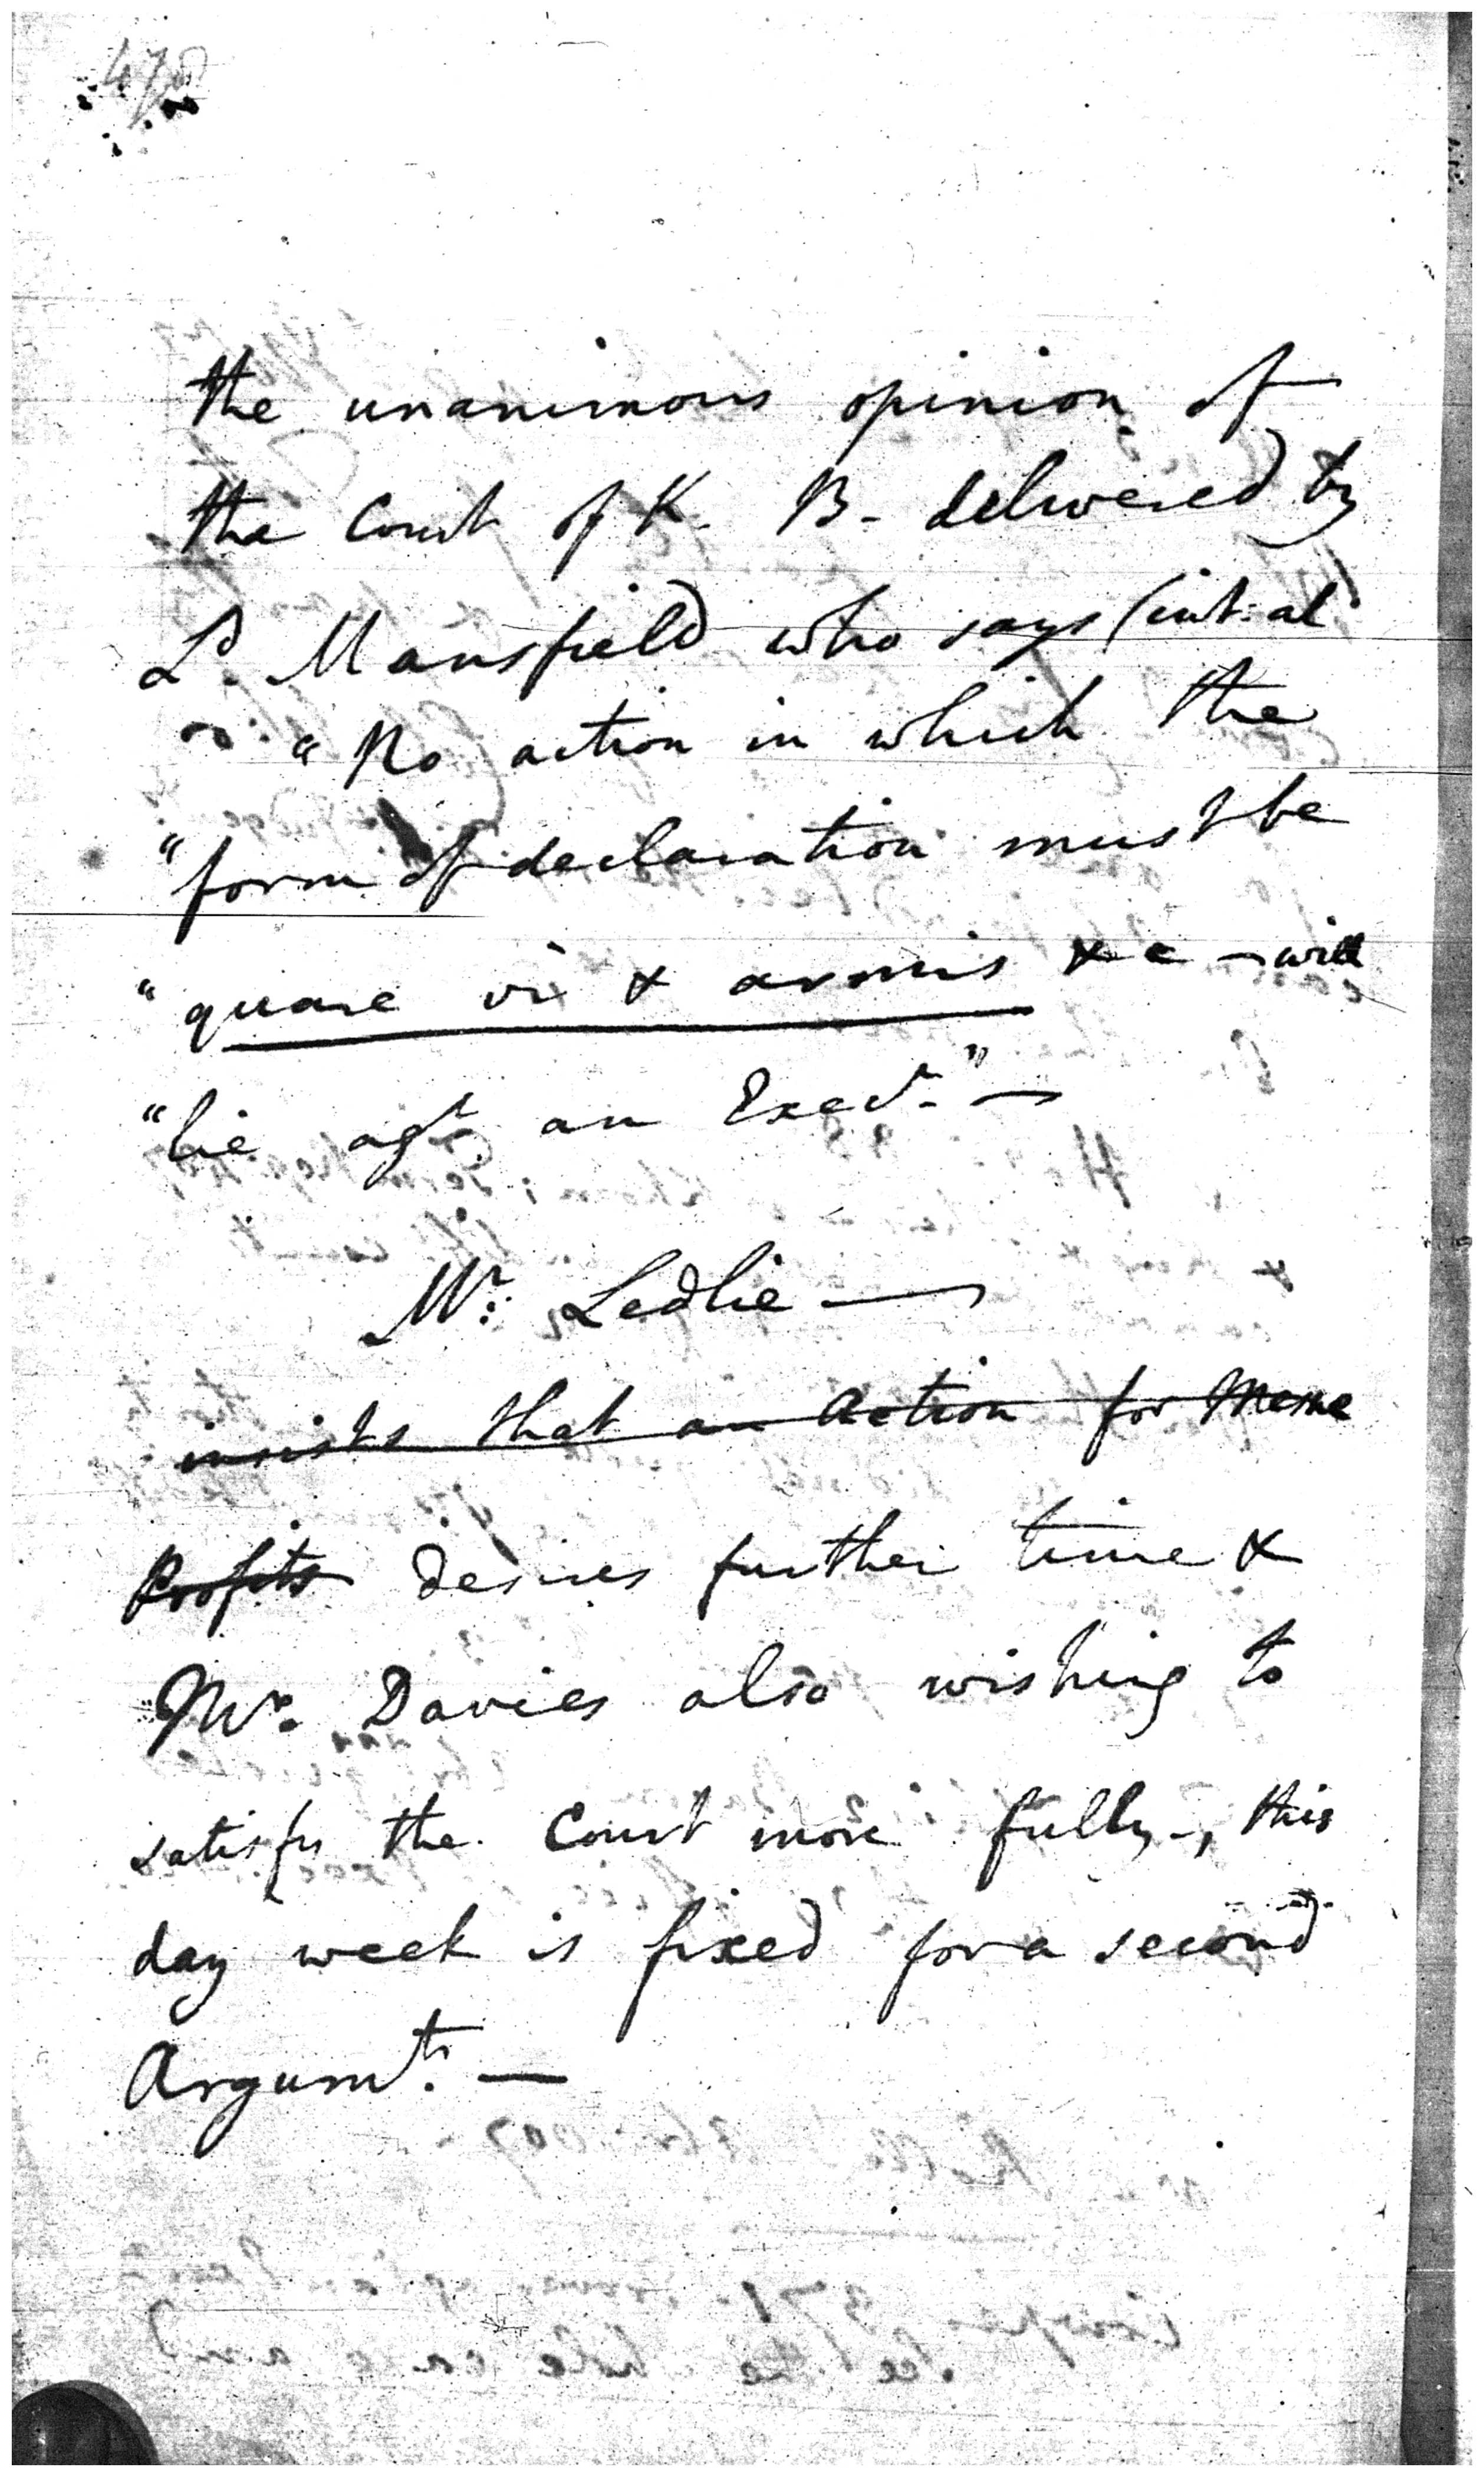 the unanimous opinion of
the Court of K. B- delivered by
Ld. Mansfield who says (int: al
"No action in which the
"form of declaration must be
"quare vi & armis &c - will
"lie agt an Exec.r" —
Mr: Ledlie —
insists that an Action for Mesne
Profits desires further time &
Mr. Davies also wishing to
satisfy the Court more fully -, this
day week is fixed for a second
Argumt. —